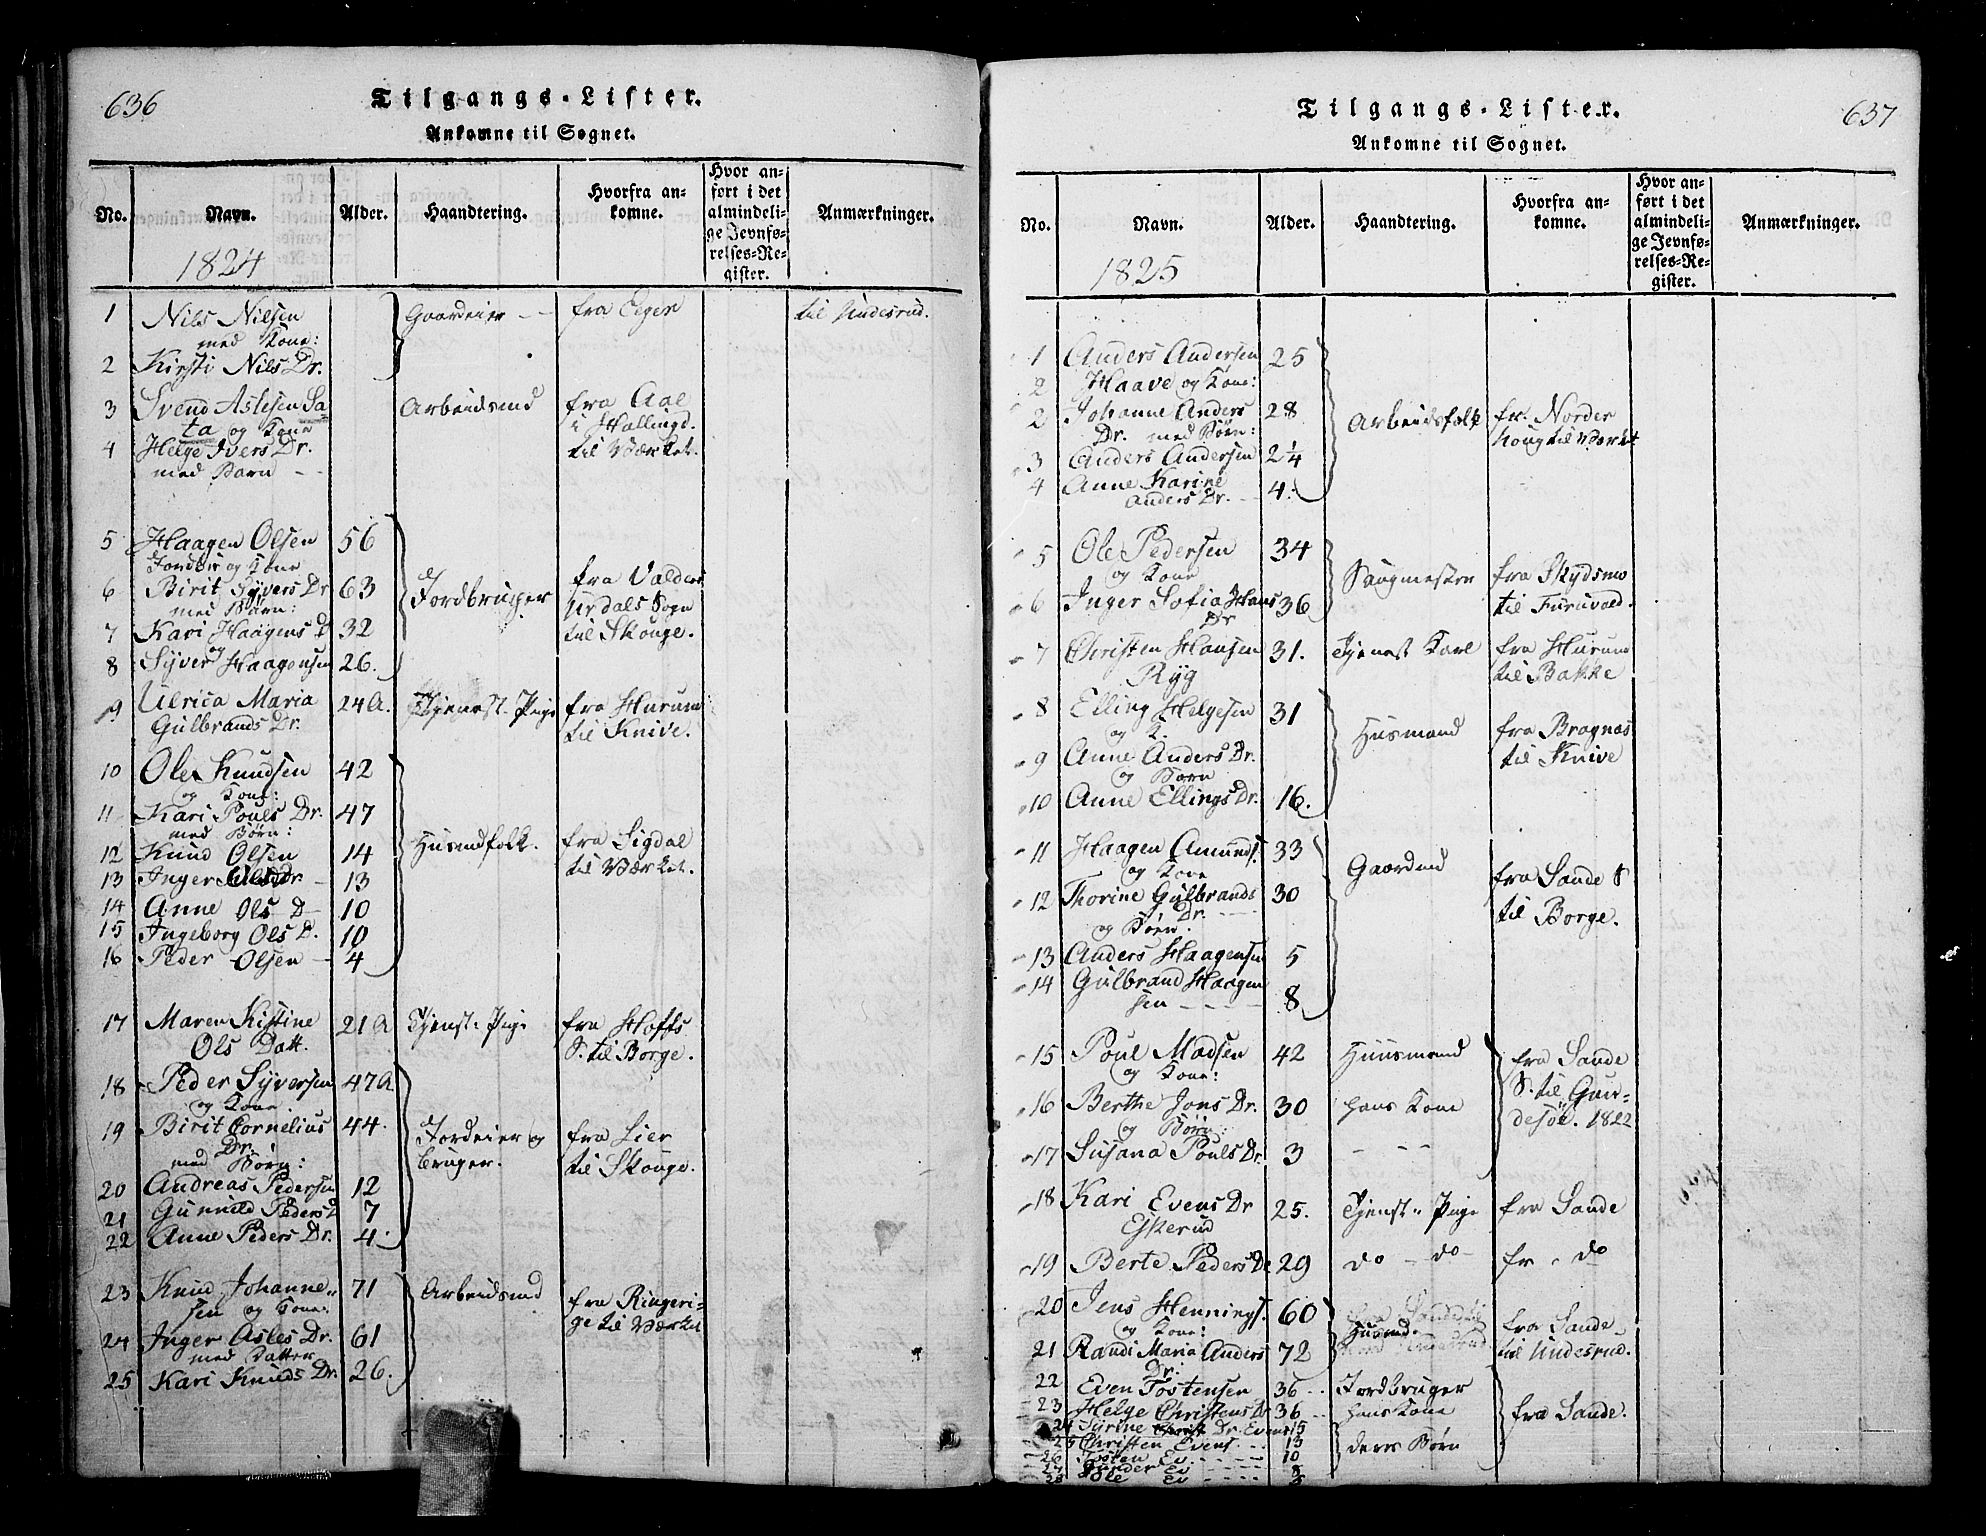 636
Tilgangs-Lister.
Ankomne til Sognet.
No. Navn. Alder. Haandtering. Hvorfra an-
komne. Hvor an-
ført i det
almindeli-
ge Jevnfø-
relses-Re-
gister. Anmærkninger.
1824
1 Nils Nilsen Gaardeier -- fra Eger til Undesrud.
med Kone:
2 Kirsti Nils Dr.
3 Svend Aslesen Sa Arbeidsmd fra Aal
ta og Kone i Hallingd.
4 Helge Ivers Dr. til Værket.
med Barn --
5 Haagen Olsen 56
Jordeier og Kone fra Valders
6 Birit Syvers Dr 63 Jordbruger Urdals Sogn
med Børn:
7 Kari Haagens D 32 til Skouge.
og
8 Syver Haagensen 26.
9 Ulrica Maria 24 A. Tjenest-Pige fra Hurum
Gulbrands Dr. til Knive.
10 Ole Knudsen 42
og Kone:
11 Kari Pouls Dr. 47
med Børn:
12 Knud Olsen 14 Husmdfolk. fra Sigdal
13 Inger Ols Dr - 13 til Værket.
14 Anne Ols D- 10
15 Ingeborg Ols D. 10
16 Peder Olsen - 4
17 Maren Kistine 21 A Tjenst-Pige fra Hoffs
Ols Datt. S. til Borge.
18 Peder Syversen 47 A.
og Kone.
19 Birit Cornelius 44. Jordeier og fra Lier
Dr.
med Børn: bruger. til Skouge.
20 Andreas Pedersen 12
21 Gunnild Peders D 7
22 Anne Peders Dr. 4.
23 Knud Johanne- 71 Arbeidsmd fra Ringeri-
sen og Kone. ge til Værket
24 Inger Asles Dr. 61
med Datter
25 Kari Knuds Dr. 26.
637
Tilgangs-Lister.
Ankomne til Sognet.
No. Navn. Alder. Haandtering. Hvorfra an-
komne. Hvor an-
ført i det
almindeli-
ge Jevnfø-
relses-Re-
gister. Anmærkninger.
1825
1 Anders Andersen 25
2 Haave og Kone:
2 Johanne Anders 28 Arbeidsfolk fr. Norder
Dr. med Børn: houg til Værket
3 Anders Andersen 2 1/4
4 Anne Karine
Anders Dr. - 4.
5 Ole Pedersen 34 Saugmester fra Skydsmo
og Kone
6 Inger Sofia Hans 36 til Furuvald.
Dr
7 Christen Hansen 31. Tjenest Karl fra Hurum
Ryg til Bakke
8 Elling Helgesen 31 Husmand fra Bragnæs
og K.
9 Anne Anders Dr. til Knive
og Barn
10 Anne Ellings Dr. 16.
11 Haagen Amunds. 33 Gaardmd fra Sande S
og Kone
12 Thorine Gulbrands 30 til Borge.
Dr. ---
og Børn.
13 Anders Haagensen 5
14 Gulbrand Haagen
sen ---- 8
15 Poul Madsen 42 Huusmand fra Sande
og Kone: S. til Gun-
16 Berthe Jons Dr. 30 hans Kone desøe. 1822
og Børn:
17 Susana Pouls Dr. 3 --
18 Kari Evens Dr 25. Tjenst-Pige fra Sande
Eskerud
19 Berte Peders Dr 29 do - do - fr - do
20 Jens Hennings. 60 Husmd. fra Sande
og Kone:
21 Randi Maria Anders 72 til Undesrud.
Dr:
22 Even Tostensen 36 -- Jordbruger
23 Helge Christens Dr 36 -- hans Kone fra Sande.
24 Syrine Christ Dr. Evens 15
25 Christen Evens. -- 13 deres Børn
26 Tosten Ev ---- 10
27 Gunder Ev ---- 8
28 Ole Ev ----